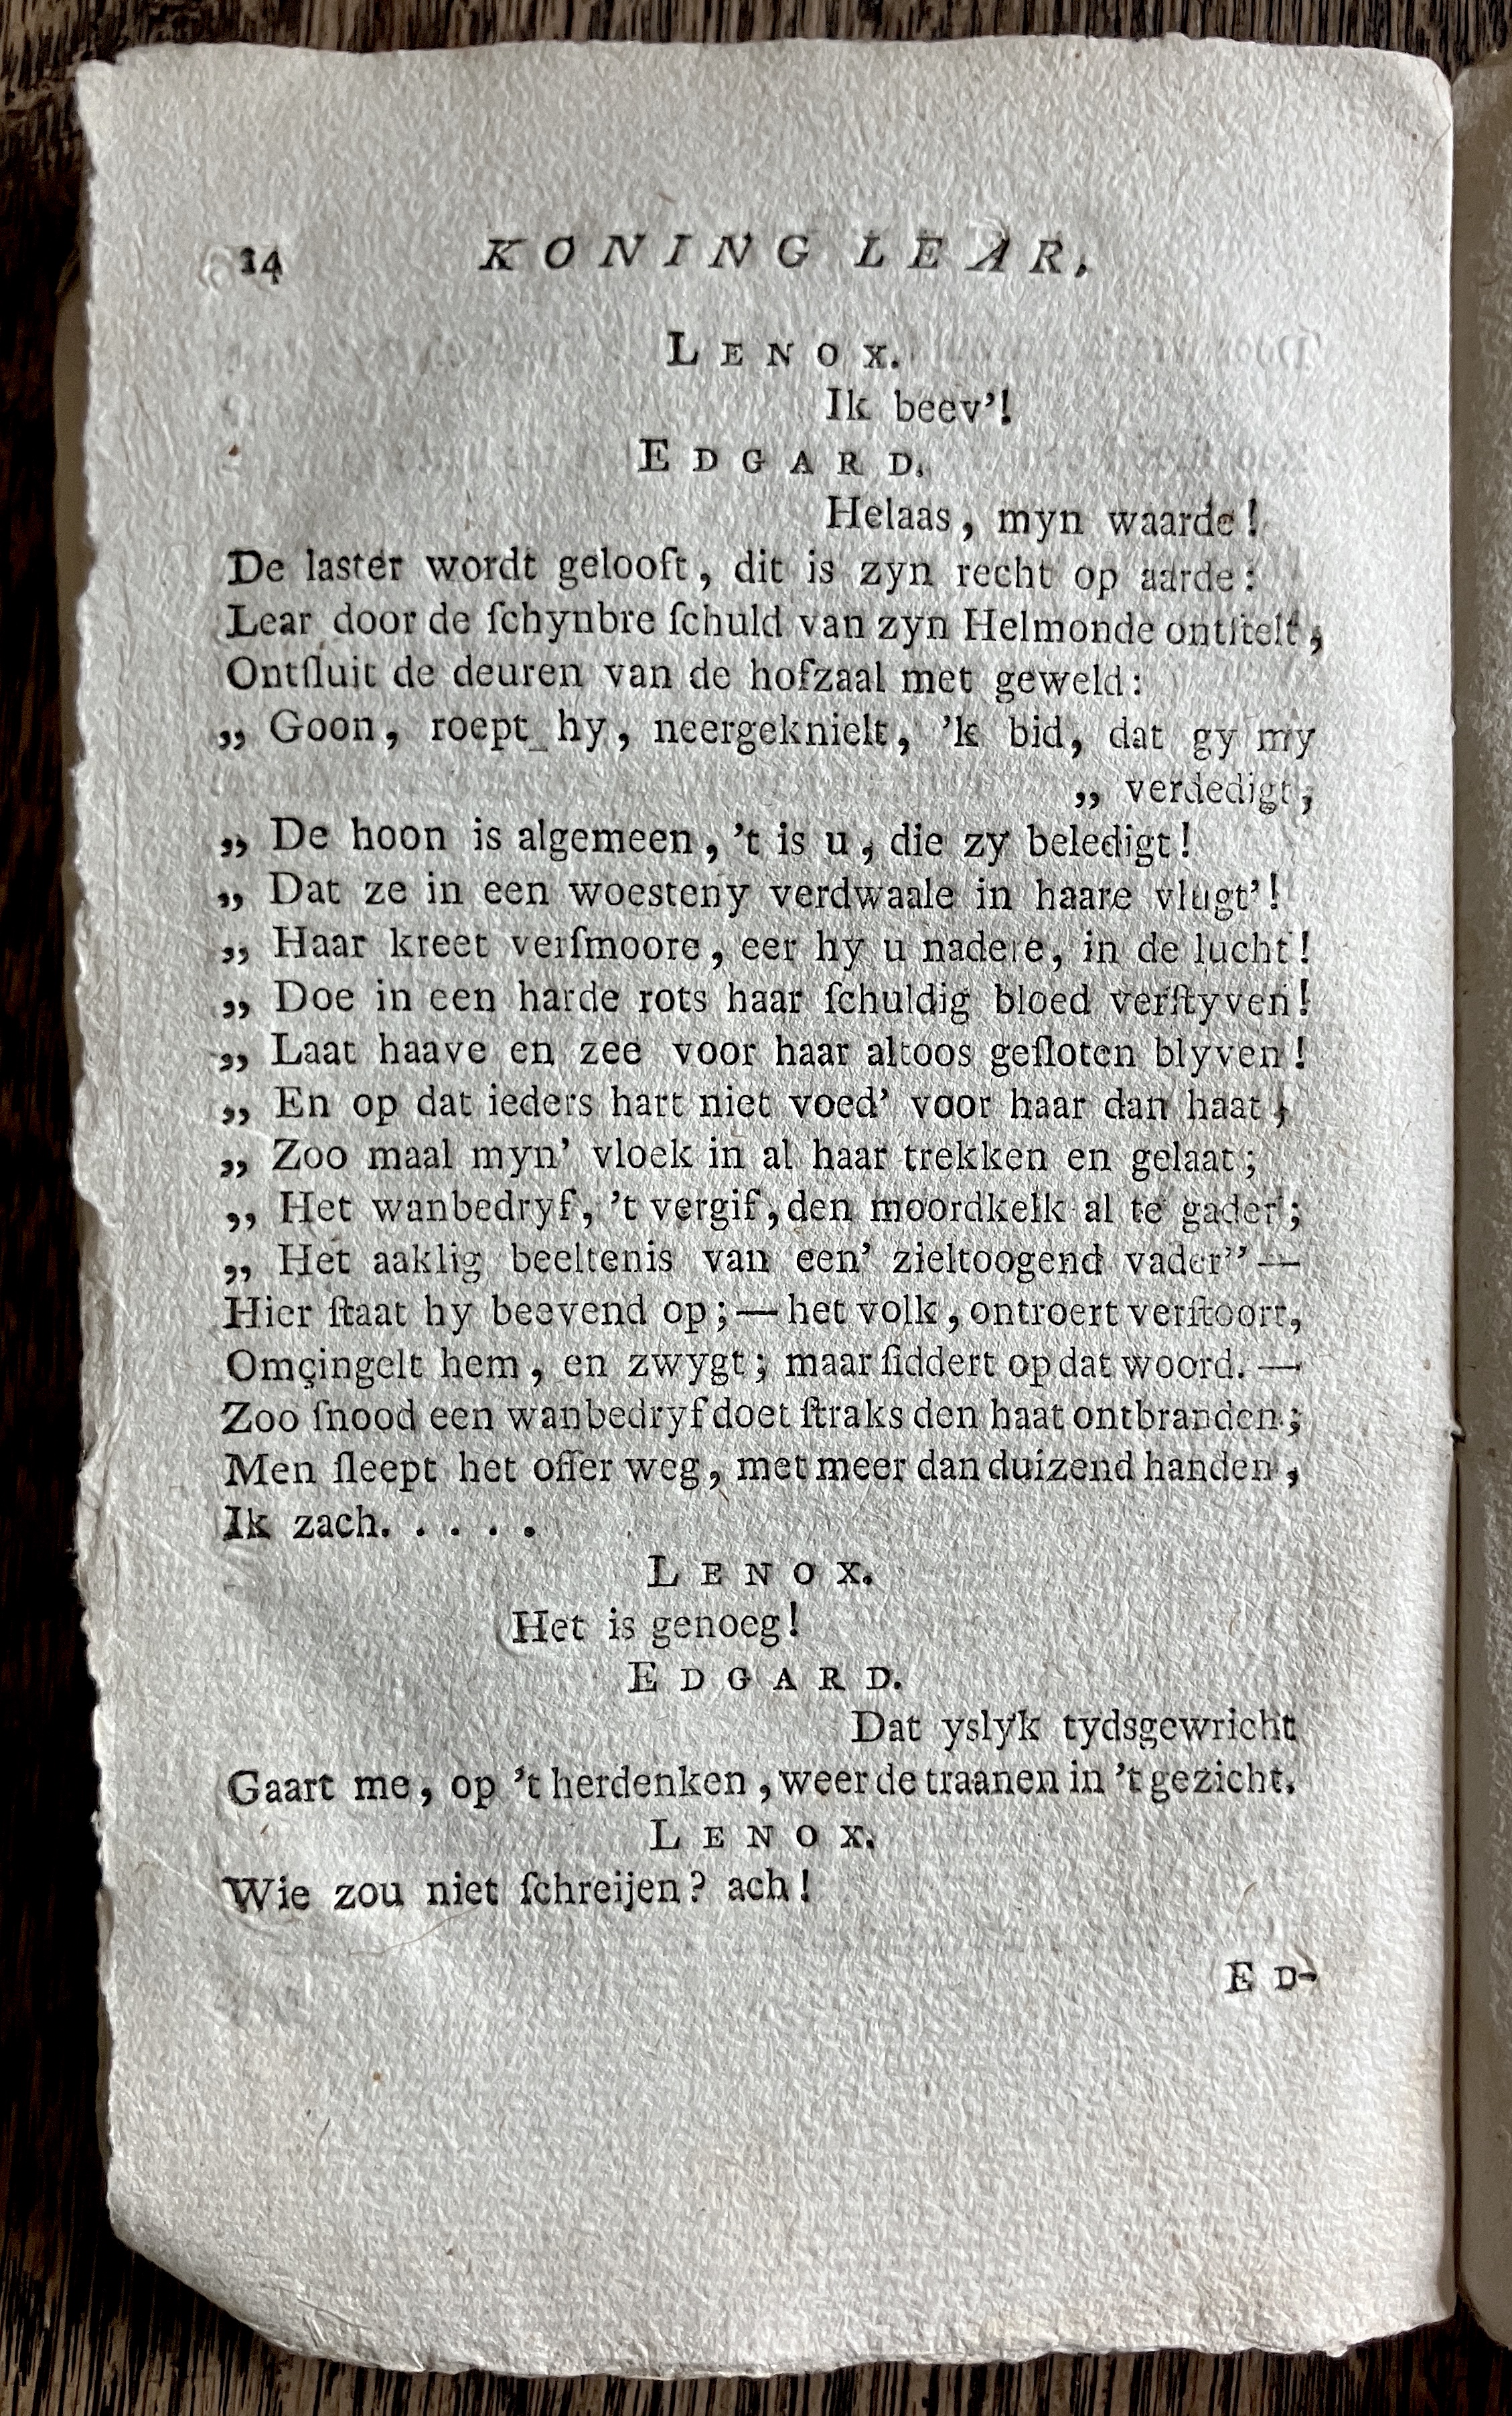 14 KONING LEAR,
LENOX.
Ik beev’!
EDGARD.
Helaas, myn waarde!
De laster wordt gelooft, dit is zyn recht op aarde:
Lear door de ſchynbre ſchuld van zyn Helmonde ontſtelt,
Ontſluit de deuren van de hofzaal met geweld:
„ Goon, roept hy, neergeknielt, ’k bid, dat gy my
„ verdedigt,
„ De hoon is algemeen, ’t is u, die zy beledigt!
„ Dat ze in een woesteny verdwaale in haare vlugt’!
„ Haar kreet verſmoore, eer hy u nadere, in de lucht!
„ Doe in een harde rots haar ſchuldig bloed verſtyven!
„ Laat haave en zee voor haar altoos geſloten blyven!
„ En op dat ieders hart niet voed’ voor haar dan haat,
„ Zoo maal myn’ vloek in al haar trekken en gelaat;
„ Het wanbedryf, ’t vergif, den moordkelk al te gader;
„ Het aaklig beeltenis van een’ zieltoogend vader” —
Hier ſtaat hy beevend op; — het volk, ontroert verſtoort,
Omçingelt hem, en zwygt; maar ſiddert op dat woord. —
Zoo ſnood een wanbedryf doet ſtraks den haat ontbranden;
Men ſleept het offer weg, met meer dan duizend handen,
Ik zach. . . . .
LENOX.
Het is genoeg!
EDGARD.
Dat yslyk tydsgewricht
Gaart me, op ’t herdenken, weer de traanen in ’t gezicht.
LENOX.
Wie zou niet ſchreijen? ach!
ED-